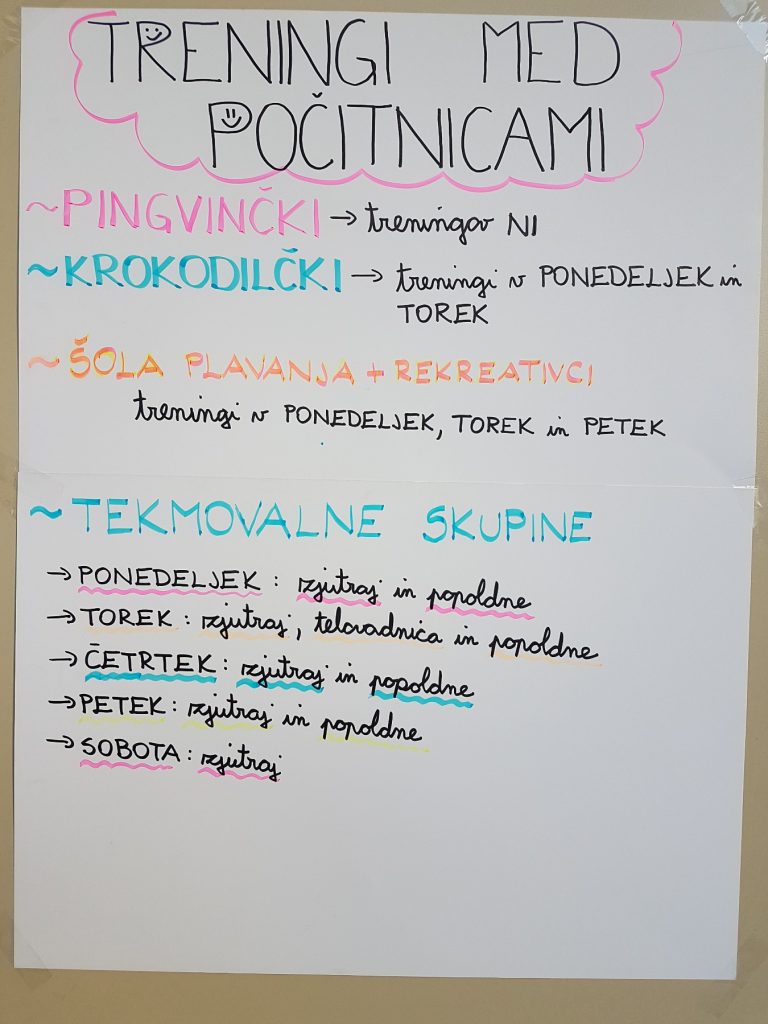 TRENINGI MED
POČITNICAMI
~PINGVINČKI → treningov NI
~KROKODILČKI → treningi v PONEDELJEK in
TOREK
~ŠOLA PLAVANJA + REKREATIVCI
treningi v PONEDELJEK, TOREK in PETEK
~TEKMOVALNE SKUPINE
→ PONEDELJEK : zjutraj in popoldne
→ TOREK : zjutraj, telovadnica in popoldne
→ ČETRTEK : zjutraj in popoldne
→ PETEK : zjutraj in popoldne
→ SOBOTA : zjutraj